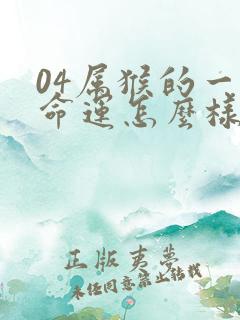 04属猴的一
命运怎麽样
正版夷梦
未经同意禁止转载